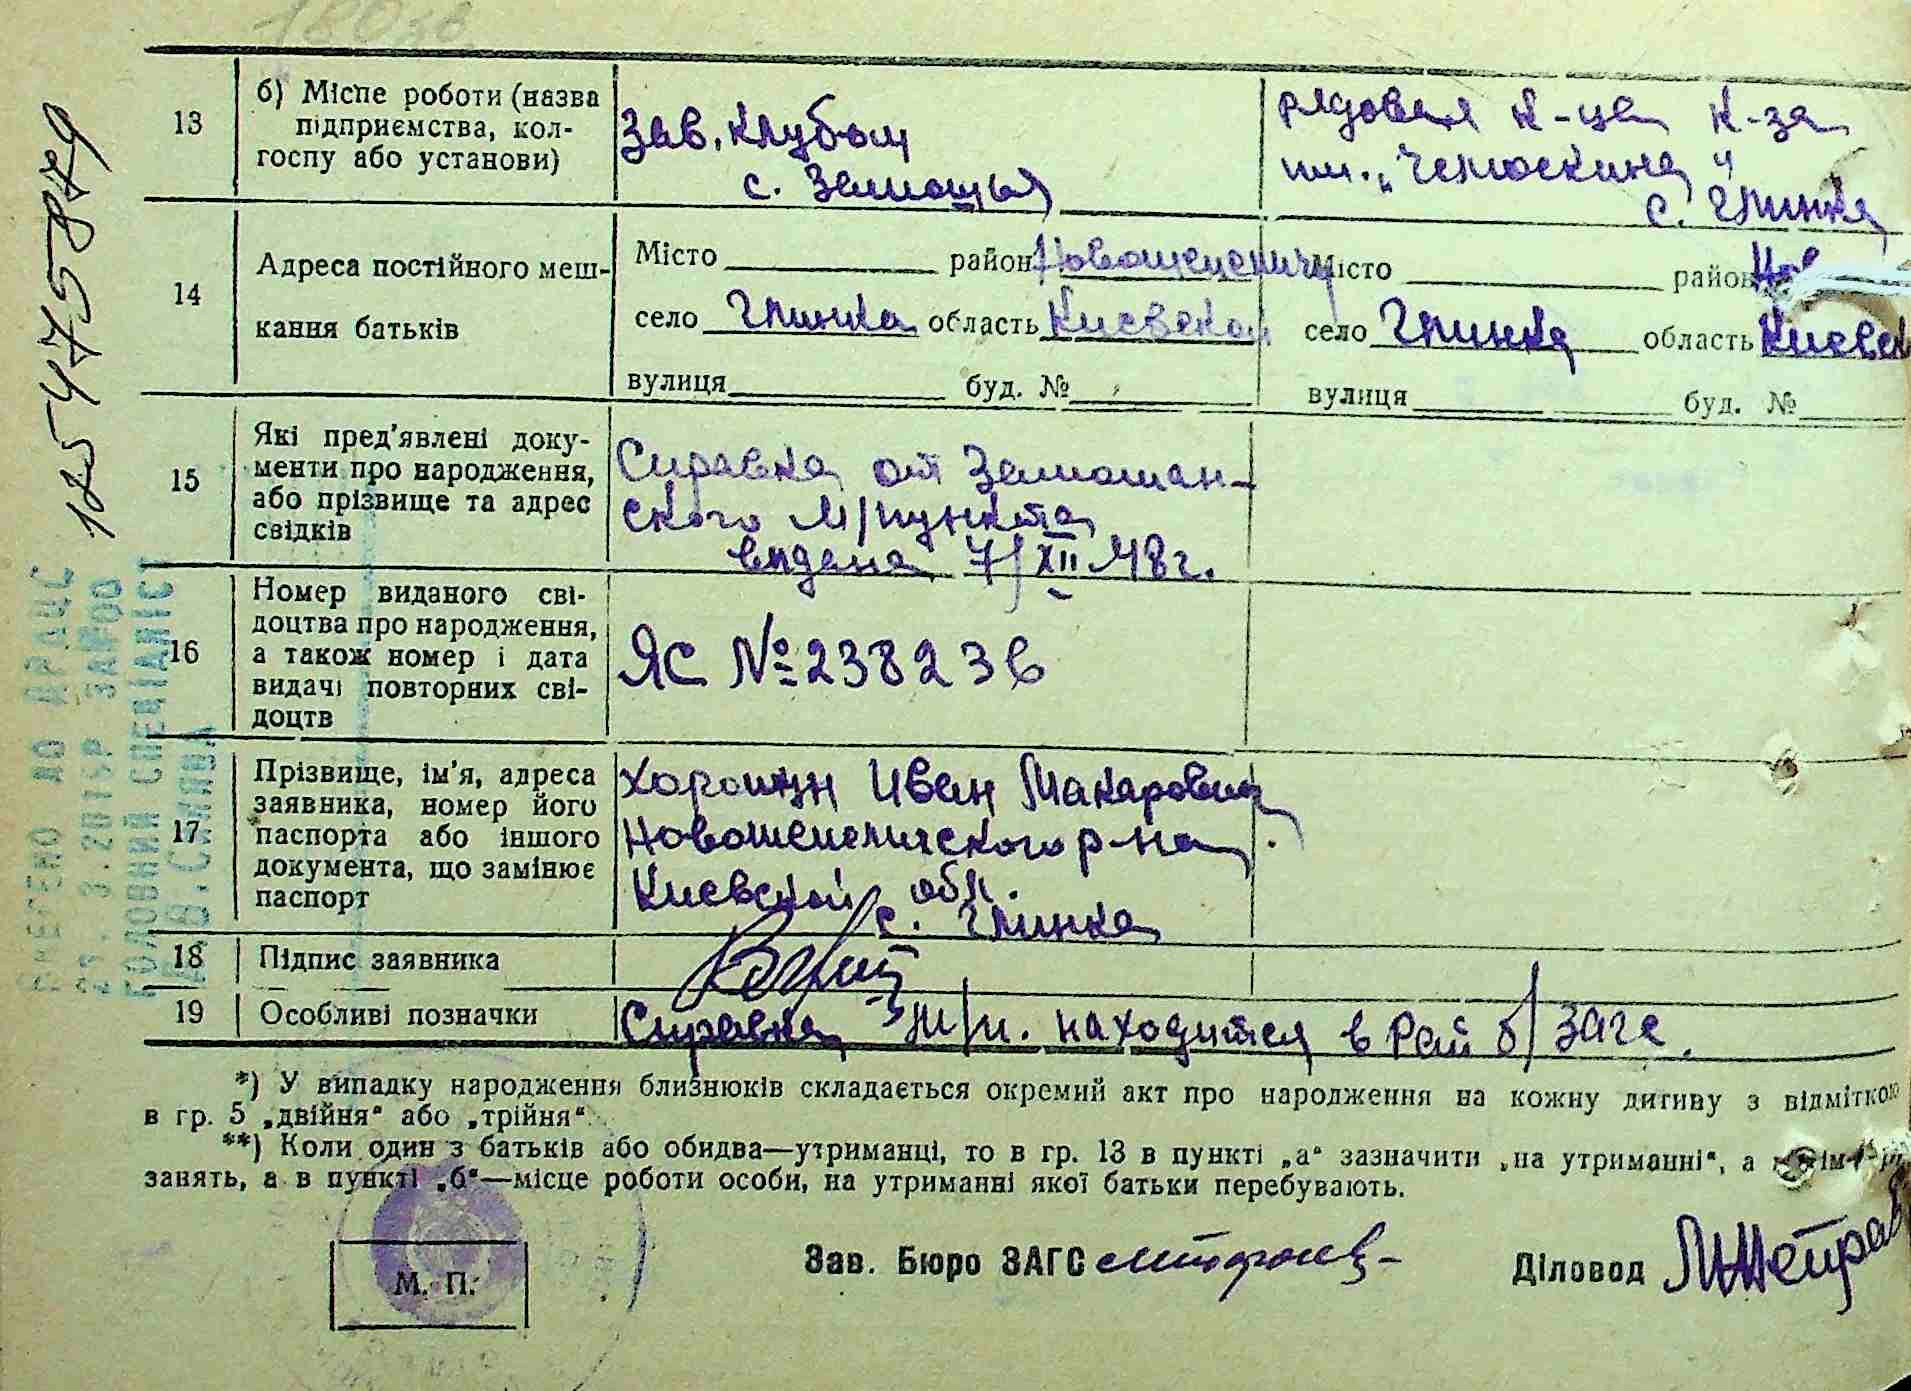 180зв
18547475879
13
б) Місце роботи (назва підприємства, колгоспу або установи)
Зав. клубом
с. Замошья
рядовая к-ца к-за
им. „Челюскина"
с. Глинка
14
Адреса постійного мешкання батьків
Місто район Новошепеличи
село Глинка область Киевской
вулиця буд. №
Місто район Нов
село Глинка область Киевск
вулиця буд. №
15
Які пред'явлені документи про народження, або прізвище та адрес свідків
Справка от Замошан-
ского м/пункта
видана 7/XII 48г.
16
Номер виданого свідоцтва про народження, а також номер і дата видачі повторних свідоцтв
ЯС №238236
17
Прізвище, ім'я, адреса заявника, номер його паспорта або іншого документа, що замінює паспорт
Хорошун Иван Макарович
Новошепеличского р-на
Киевской обл.
с. Глинка
18
Підпис заявника
19
Особливі позначки
Справка м/п. находится в Рай б/Загс.
*) У випадку народження близнюків складається окремий акт про народження на кожну дитину з відміткою
в гр. 5 „двійня" або „трійня"
**) Коли один з батьків або обидва—утриманці, то в гр. 13 в пункті „а" зазначити „на утриманні", а
занять, а в пункті „б"—місце роботи особи, на утриманні якої батьки перебувають.
М. П.
Зав. Бюро ЗАГС
Діловод
ВНЕСЕНО ДО ДРАЦС
ГОЛОВНИЙ СПЕЦІАЛІСТ